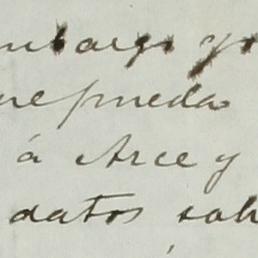 mbargo yo
ue pueda
á Arce y
datos sob